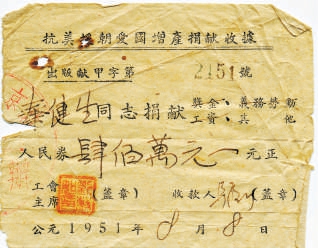 抗美援朝愛國增產捐献收據
出版献甲字第 2151 號
健生同志捐献 獎金、義務勞動 工資、其他
人民券肆佰萬元一元正
工會主席 (蓋章) 收款人 (蓋章)
公元1951年8月8日